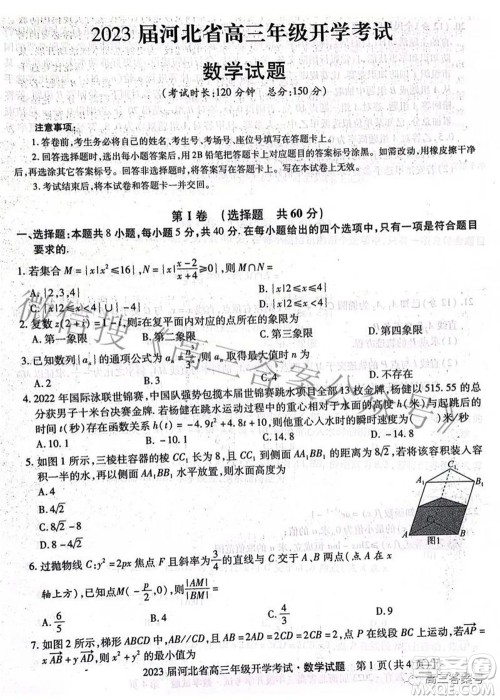 2023 届河北省高三年级开学考试
数学试题
(考试时长:120 分钟 总分:150 分)
注意事项:
1. 答卷前,考生务必将自己的姓名、考生号、考场号、座位号填写在答题卡上。
2. 回答选择题时,选出每小题答案后,用 2B 铅笔把答题卡上对应题目的答案标号涂黑。如需改动,用橡皮擦干净
后,再选涂其它答案标号。回答非选择题时,将答案写在答题卡上。写在本试卷上无效。
3. 考试结束后,将本试卷和答题卡一并交回。
第 Ⅰ 卷 (选择题 共 60 分)
一、选择题:本题共 8 小题,每小题 5 分,共 40 分. 在每小题给出的四个选项中,只有一项是符合题目
要求的.
1. 若集合 M={x|x²≤16},N={x|(x-2)/(x+4)≥0},则 M∩N=
A. {2,3,4} B. {x|2≤x≤4}
C. {x|2≤x<4}∪{-4} D. {x|2≤x<4}
A. 第一象限 B. 第二象限 C. 第三象限 D. 第四象限
A. 2 B. 3 C. 4 D. 5
4. 2022 年国际泳联世锦赛,中国队强势包揽本届世锦赛跳水项目全部 13 枚金牌. 杨健以 515.55 的总
分获男子十米台决赛金牌. 若杨健在跳水运动过程中的重心相对于水面的高度 h(米)与起跳后的
时间 t(秒)存在函数关系 h(t)=-4.9t²+4.8t+10,则他重心入水时的瞬时速度为( )米/秒
A. 10.1 B. -10.1 C. 14.8 D. -14.8
5. 如图 1 所示,三棱柱容器的棱长 CC₁ 长为 8,且 CC₁ 到侧面 AA₁BB₁ 的距离为 4,若将该容器装入容
积一半的水,再以侧面 AA₁BB₁ 水平放置,则水面高度为
A. 4
B. 4√2
C. 8√2-8
D. 4-2√2
A₁
C₁
B₁
C
A
B
图1
6. 过抛物线 C:y²=2px 焦点 F 且斜率为 3/4 的直线与 C 交于 A,B 两点(点 A 在 x
轴上方),已知点 M(-p/2,0),则 |AM|/|BM|=
A. 6/5 B. 2 C. 4/3 D. 4
7. 如图 2 所示,梯形 ABCD 中,AB//CD,且 AB=2CD,点 P 在线段 BC 上运动,若 AP=
xAB+yAD,则 x²+y² 的最小值为
2023 届河北省高三年级开学考试·数学试题 第 1 页(共 4 页)